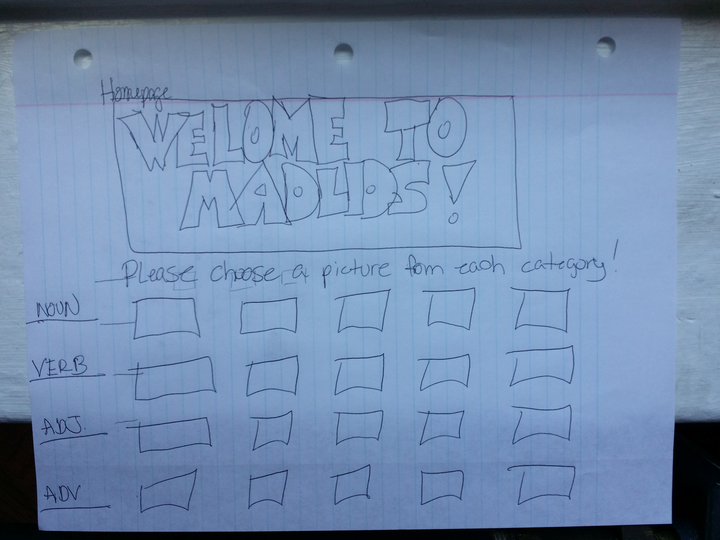 Homepage
WELOME TO
MADLIDS!
Please choose a picture from each category!
NOUN
VERB
ADJ.
ADV